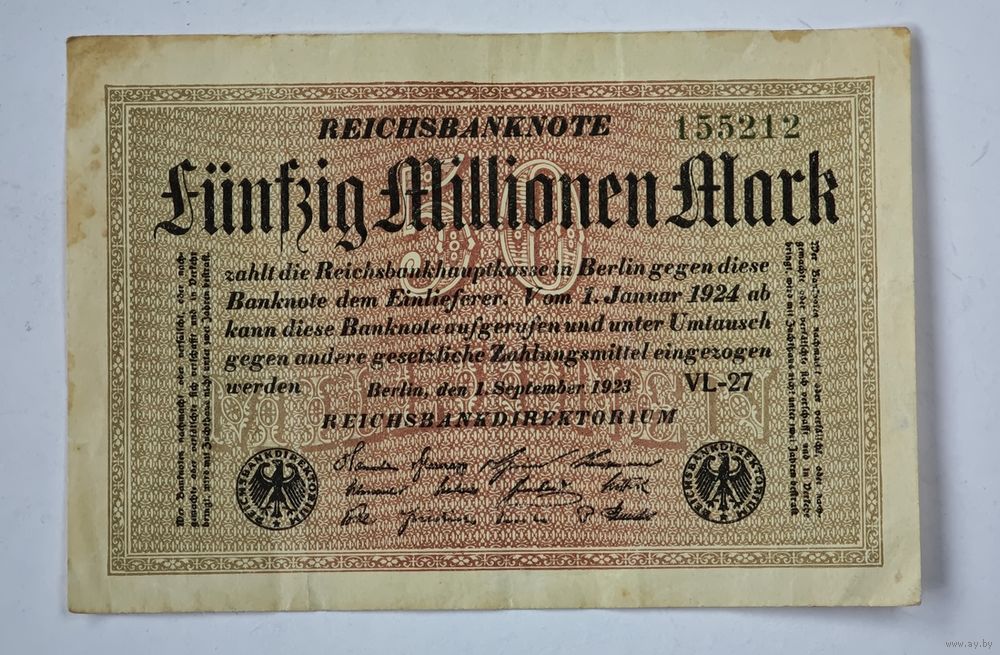 REICHSBANKNOTE 155212
Fünfzig Millionen Mark
50
zahlt die Reichsbankhauptkasse in Berlin gegen diese
Banknote dem Einlieferer. Vom 1. Januar 1924 ab
kann diese Banknote aufgerufen und unter Umtausch
gegen andere gesetzliche Zahlungsmittel eingezogen
werden
Berlin, den 1. September 1923 VL-27
REICHSBANKDIREKTORIUM
Wer Banknoten nachmacht oder verfälscht, oder nach-
gemachte oder verfälschte sich verschafft und in Verkehr
bringt, wird mit Zuchthaus nicht unter zwei Jahren bestraft.
Wer Banknoten nachmacht oder verfälscht, oder nach-
gemachte oder verfälschte sich verschafft und in Verkehr
bringt, wird mit Zuchthaus nicht unter zwei Jahren bestraft
REICHSBANKDIREKTORIUM
REICHSBANKDIREKTORIUM
MILLIONEN
www.ay.by